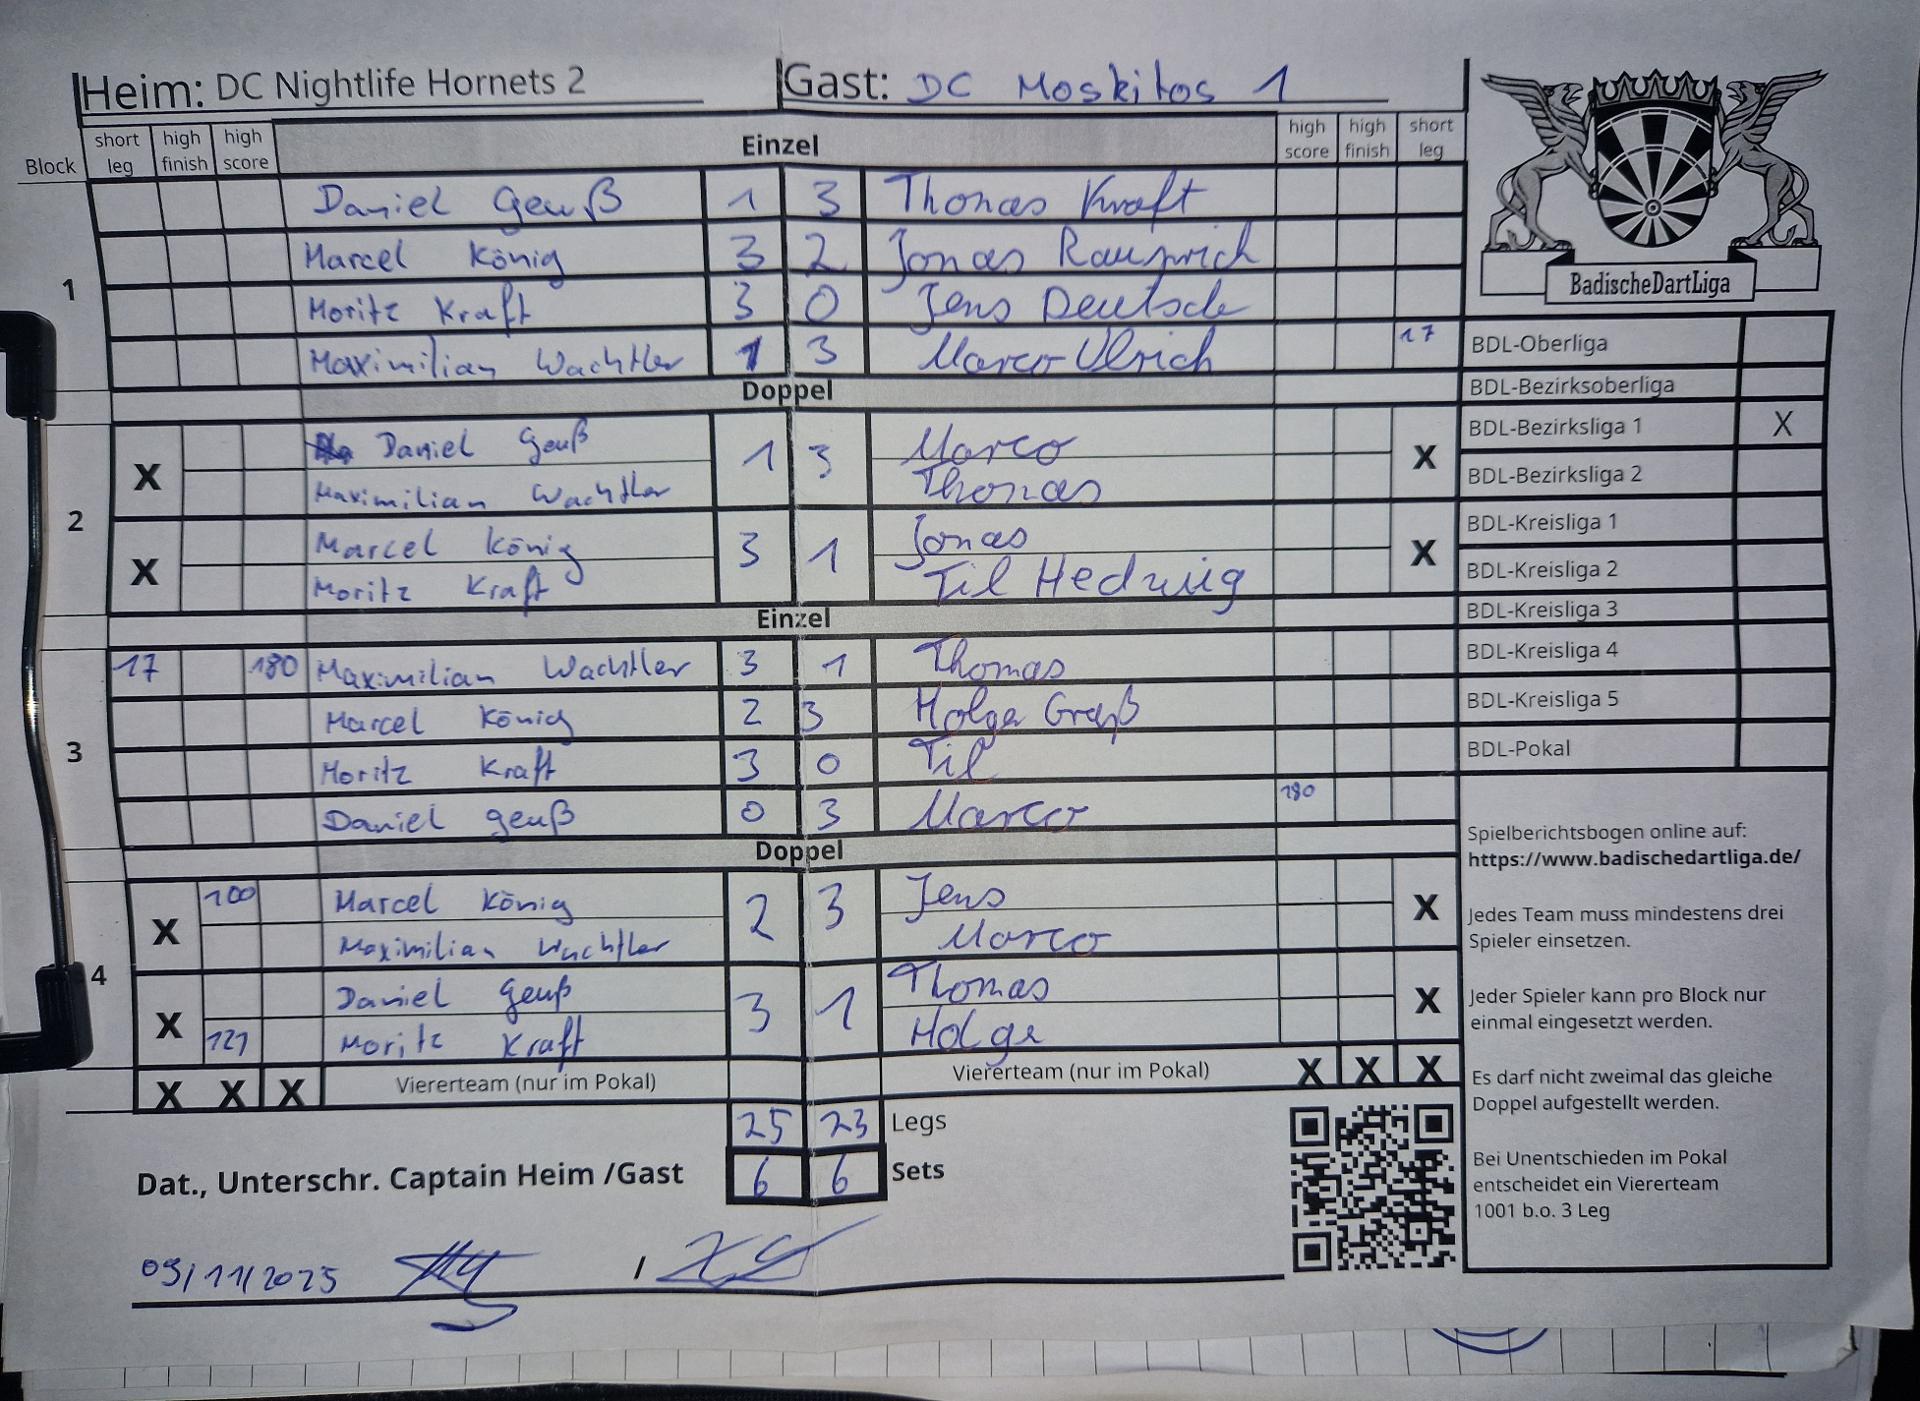 Heim: DC Nightlife Hornets 2 Gast: DC Moskitos 1
Block short leg high finish high score Einzel high score high finish short leg
1
Daniel Geuß 1 3 Thomas Kraft
Marcel König 3 2 Jonas
Moritz Kraft 3 0 Jens Deutsch
Maximilian Wachtler 1 3 Marco Ulrich 17
Doppel
2
X Daniel Geuß 1 3 Marco X
Maximilian Wachtler Thomas
X Marcel König 3 1 Jonas X
Moritz Kraft Til Hedwig
Einzel
3
17 180 Maximilian Wachtler 3 1 Thomas
Marcel König 2 3 Holga Graß
Moritz Kraft 3 0 Til
Daniel Geuß 0 3 Marco 180
Doppel
4
X 100 Marcel König 2 3 Jens X
Maximilian Wachtler Marco
X Daniel Geuß 3 1 Thomas X
121 Moritz Kraft Holga
X X X Viererteam (nur im Pokal) Viererteam (nur im Pokal) X X X
25 23 Legs
6 6 Sets
Dat., Unterschr. Captain Heim /Gast
09/11/2025 /
BadischeDartLiga
BDL-Oberliga
BDL-Bezirksoberliga
BDL-Bezirksliga 1 X
BDL-Bezirksliga 2
BDL-Kreisliga 1
BDL-Kreisliga 2
BDL-Kreisliga 3
BDL-Kreisliga 4
BDL-Kreisliga 5
BDL-Pokal
Spielberichtsbogen online auf:
https://www.badischedartliga.de/
Jedes Team muss mindestens drei
Spieler einsetzen.
Jeder Spieler kann pro Block nur
einmal eingesetzt werden.
Es darf nicht zweimal das gleiche
Doppel aufgestellt werden.
Bei Unentschieden im Pokal
entscheidet ein Viererteam
1001 b.o. 3 Leg